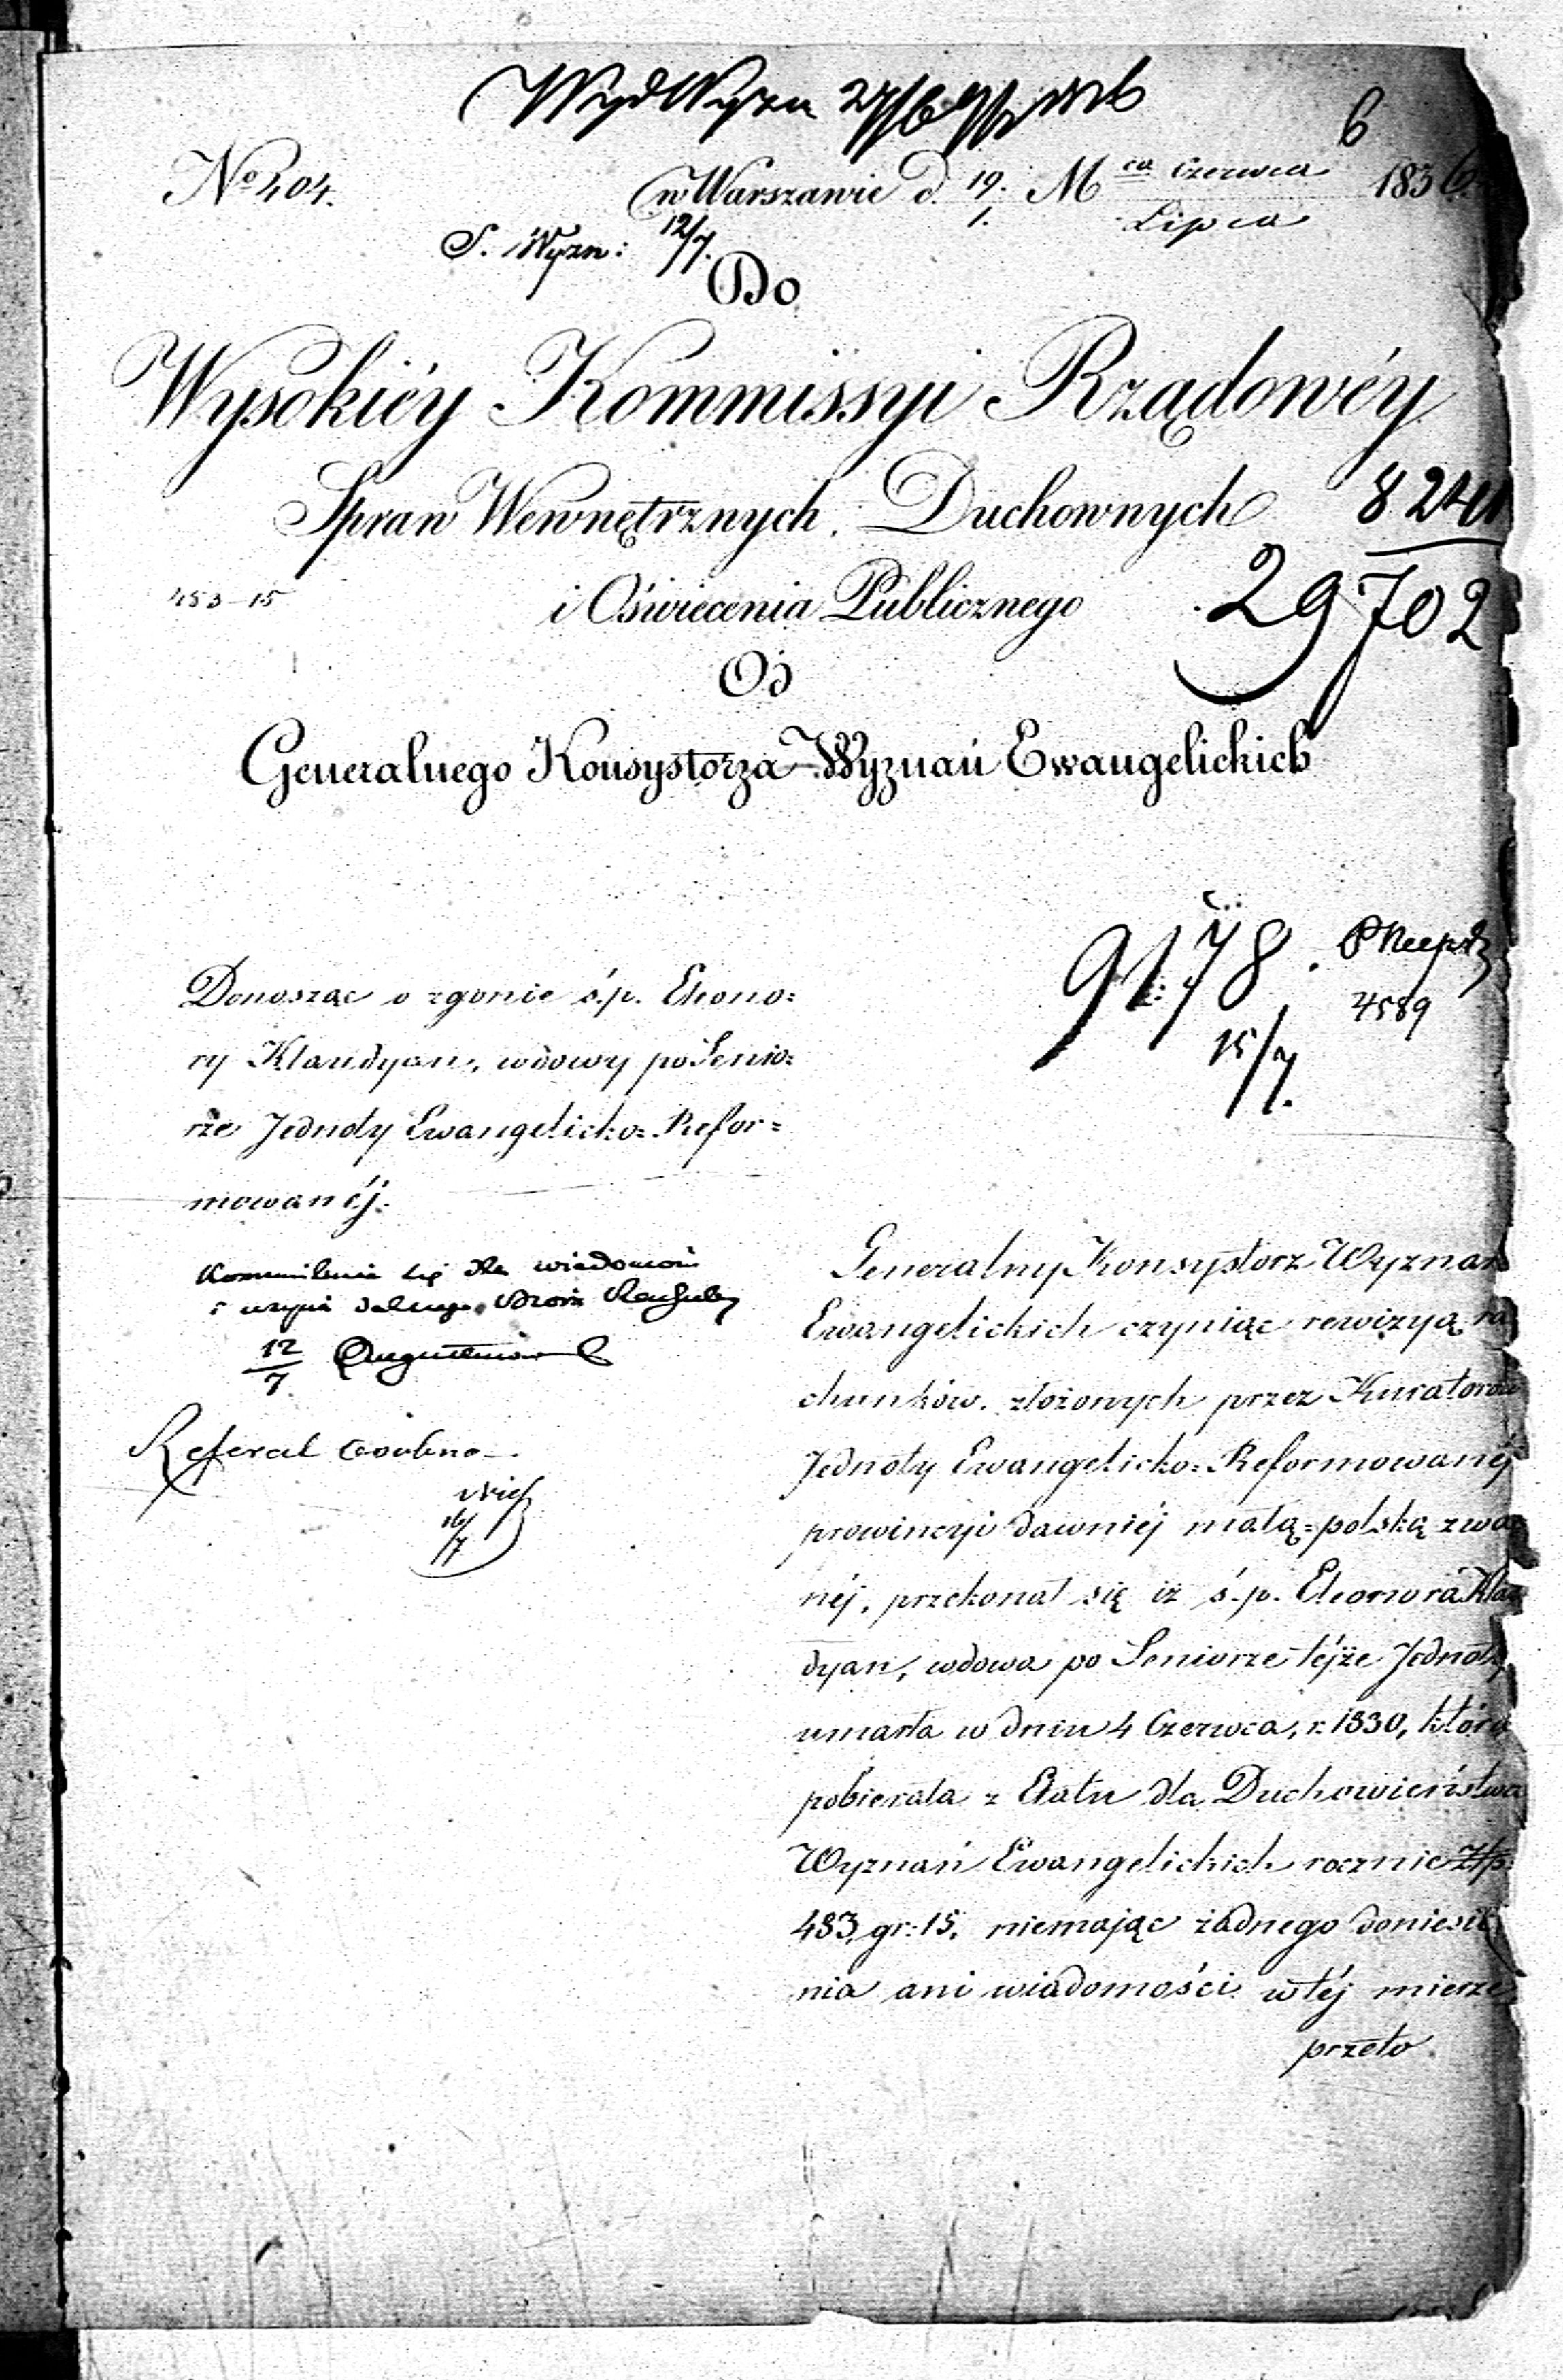 6
No 404.
w Warszawie d. 19. Mca Czerwca 1836
1. Lipca
S. Wyzn: 12/7.
Do
Wysokiéy Kommissyi Rządowéy
Spraw Wewnętrznych, Duchownych
8241
i Oświecenia Publicznego
29702
453-15
Od
Generalnego Konsystorza Wyznań Ewangelickich
9178.
4589
15/7.
Donosząc o zgonie ś.p. Eleono=
ry Klaudyan, wdowy po Senio=
rze Jednoty Ewangelicko=Refor=
mowanéj.
wiadomości
12/7
Referat osobno
16/7
Generalny Konsystorz Wyznań
Ewangelickich czyniąc rewizyą ra
chunków, złożonych przez Kuratorów
Jednoty Ewangelicko=Reformowanéj
prowincyi dawniéj mało=polską zwa
néj, przekonał się iż ś.p. Eleonora Klau
dyan, wdowa po Seniorze téjże Jednoty
umarła w dniu 4 Czerwca, r. 1830, która
pobierała z Etatu dla Duchowieństwa
Wyznań Ewangelickich rocznie Złp.
483, gr: 15, niemając żadnego doniesie
nia ani wiadomości w téj mierze
przeto